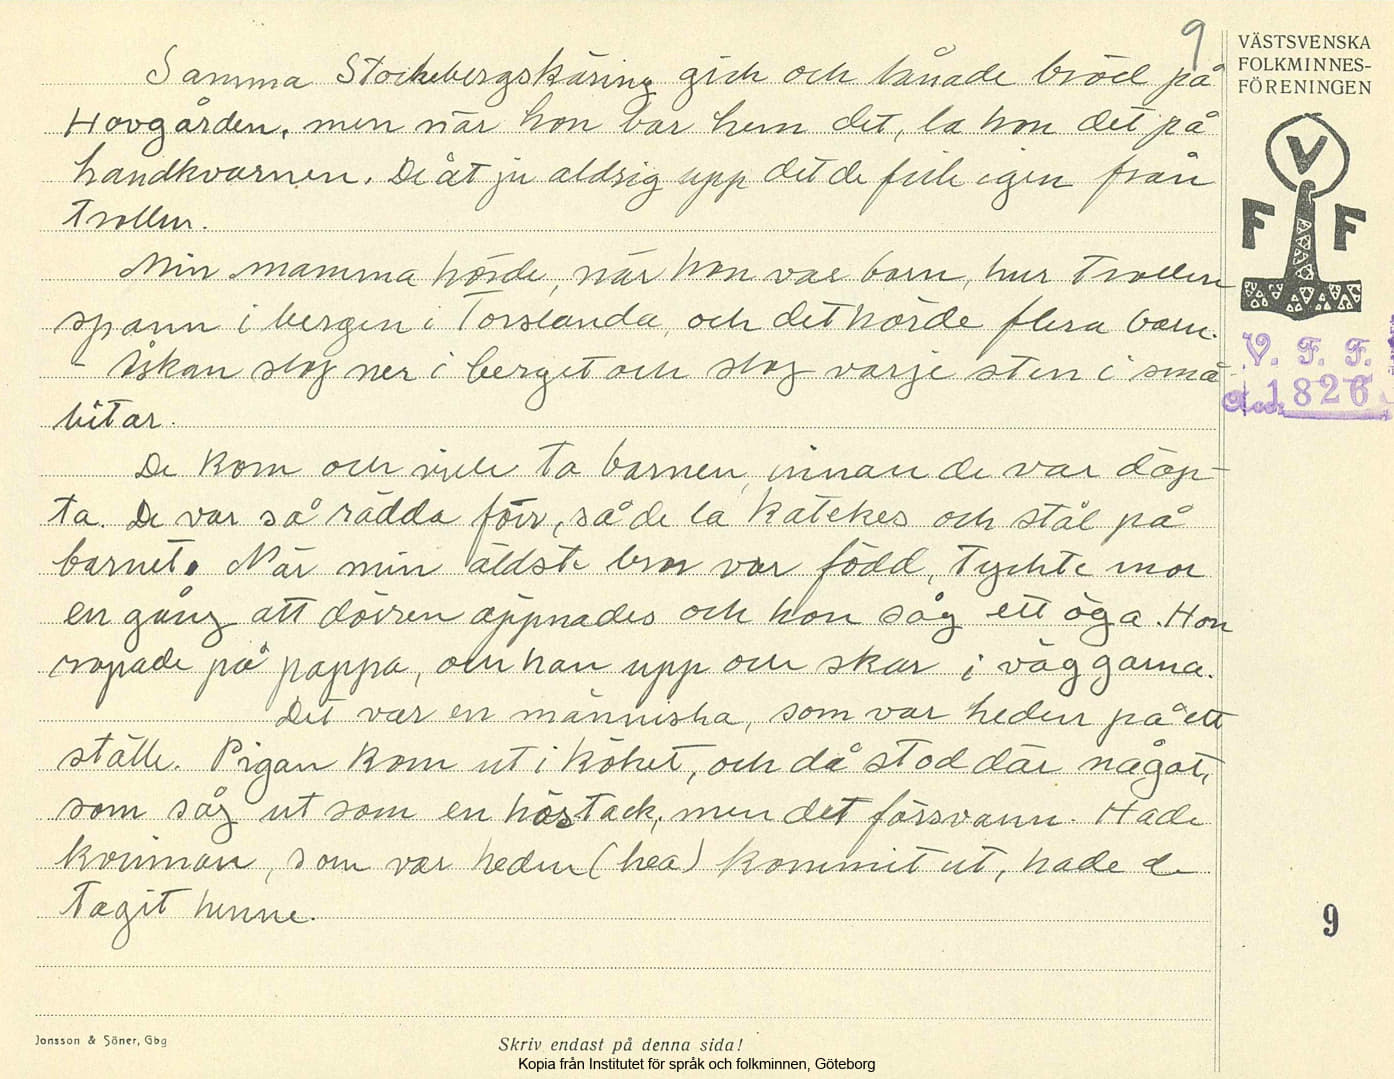 9
VÄSTSVENSKA
FOLKMINNES-
FÖRENINGEN
V
F F
V. F. F.
Acc. 1826
Samma Stockebergskäring gick och lånade bröd på
Hovgården, men när hon bar hem det, la hon det på
handkvarnen. De åt ju aldrig upp det de fick igen från
trollen.
Min mamma hörde, när hon var barn, hur trollen
spann i bergen i Torslanda, och det hörde flera barn.
- Åskan slog ner i berget och slog varje sten i små
bitar.
De kom och ville ta barnen, innan de var döp-
ta. De var så rädda förr, så de la katekes och stål på
barnet. När min äldste bror var född, tyckte mor
en gång att dörren öppnades och hon såg ett öga. Hon
ropade på pappa, och han upp och skar i väggarna.
Det var en människa, som var heden på ett
ställe. Pigan kom ut i köket, och då stod där något,
som såg ut som en höstack, men det försvann. Hade
kvinnan, som var heden (hea) kommit ut, hade de
tagit henne.
9
Jonsson & Söner, Gbg
Skriv endast på denna sida!
Kopia från Institutet för språk och folkminnen, Göteborg